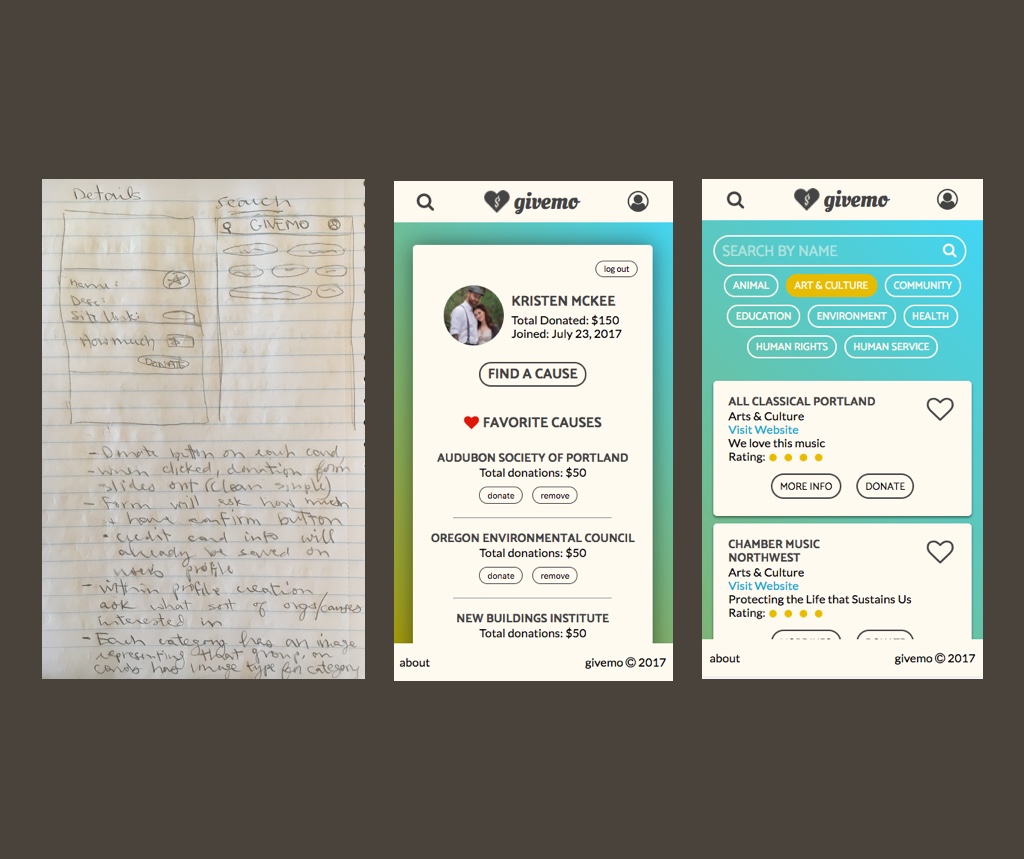 Details
Name:
Desc:
Site Link:
How much $
DONATE
search
GIVEMO
- Donate button on each card,
- when clicked, donation form
slides out (clean simple)
- Form will ask how much
+ have confirm button
• credit card info will
already be saved on
users profile
- within profile creation
ask what sort of orgs/causes
interested in
- Each category has an image
representing that group, on
cards has image type for category
givemo
log out
KRISTEN MCKEE
Total Donated: $150
Joined: July 23, 2017
FIND A CAUSE
FAVORITE CAUSES
AUDUBON SOCIETY OF PORTLAND
Total donations: $50
donate remove
OREGON ENVIRONMENTAL COUNCIL
Total donations: $50
donate remove
NEW BUILDINGS INSTITUTE
Total donations: $50
about givemo © 2017
givemo
SEARCH BY NAME
ANIMAL ART & CULTURE COMMUNITY
EDUCATION ENVIRONMENT HEALTH
HUMAN RIGHTS HUMAN SERVICE
ALL CLASSICAL PORTLAND
Arts & Culture
Visit Website
We love this music
Rating:
MORE INFO DONATE
CHAMBER MUSIC
NORTHWEST
Arts & Culture
Visit Website
Protecting the Life that Sustains Us
Rating:
MORE INFO DONATE
about givemo © 2017